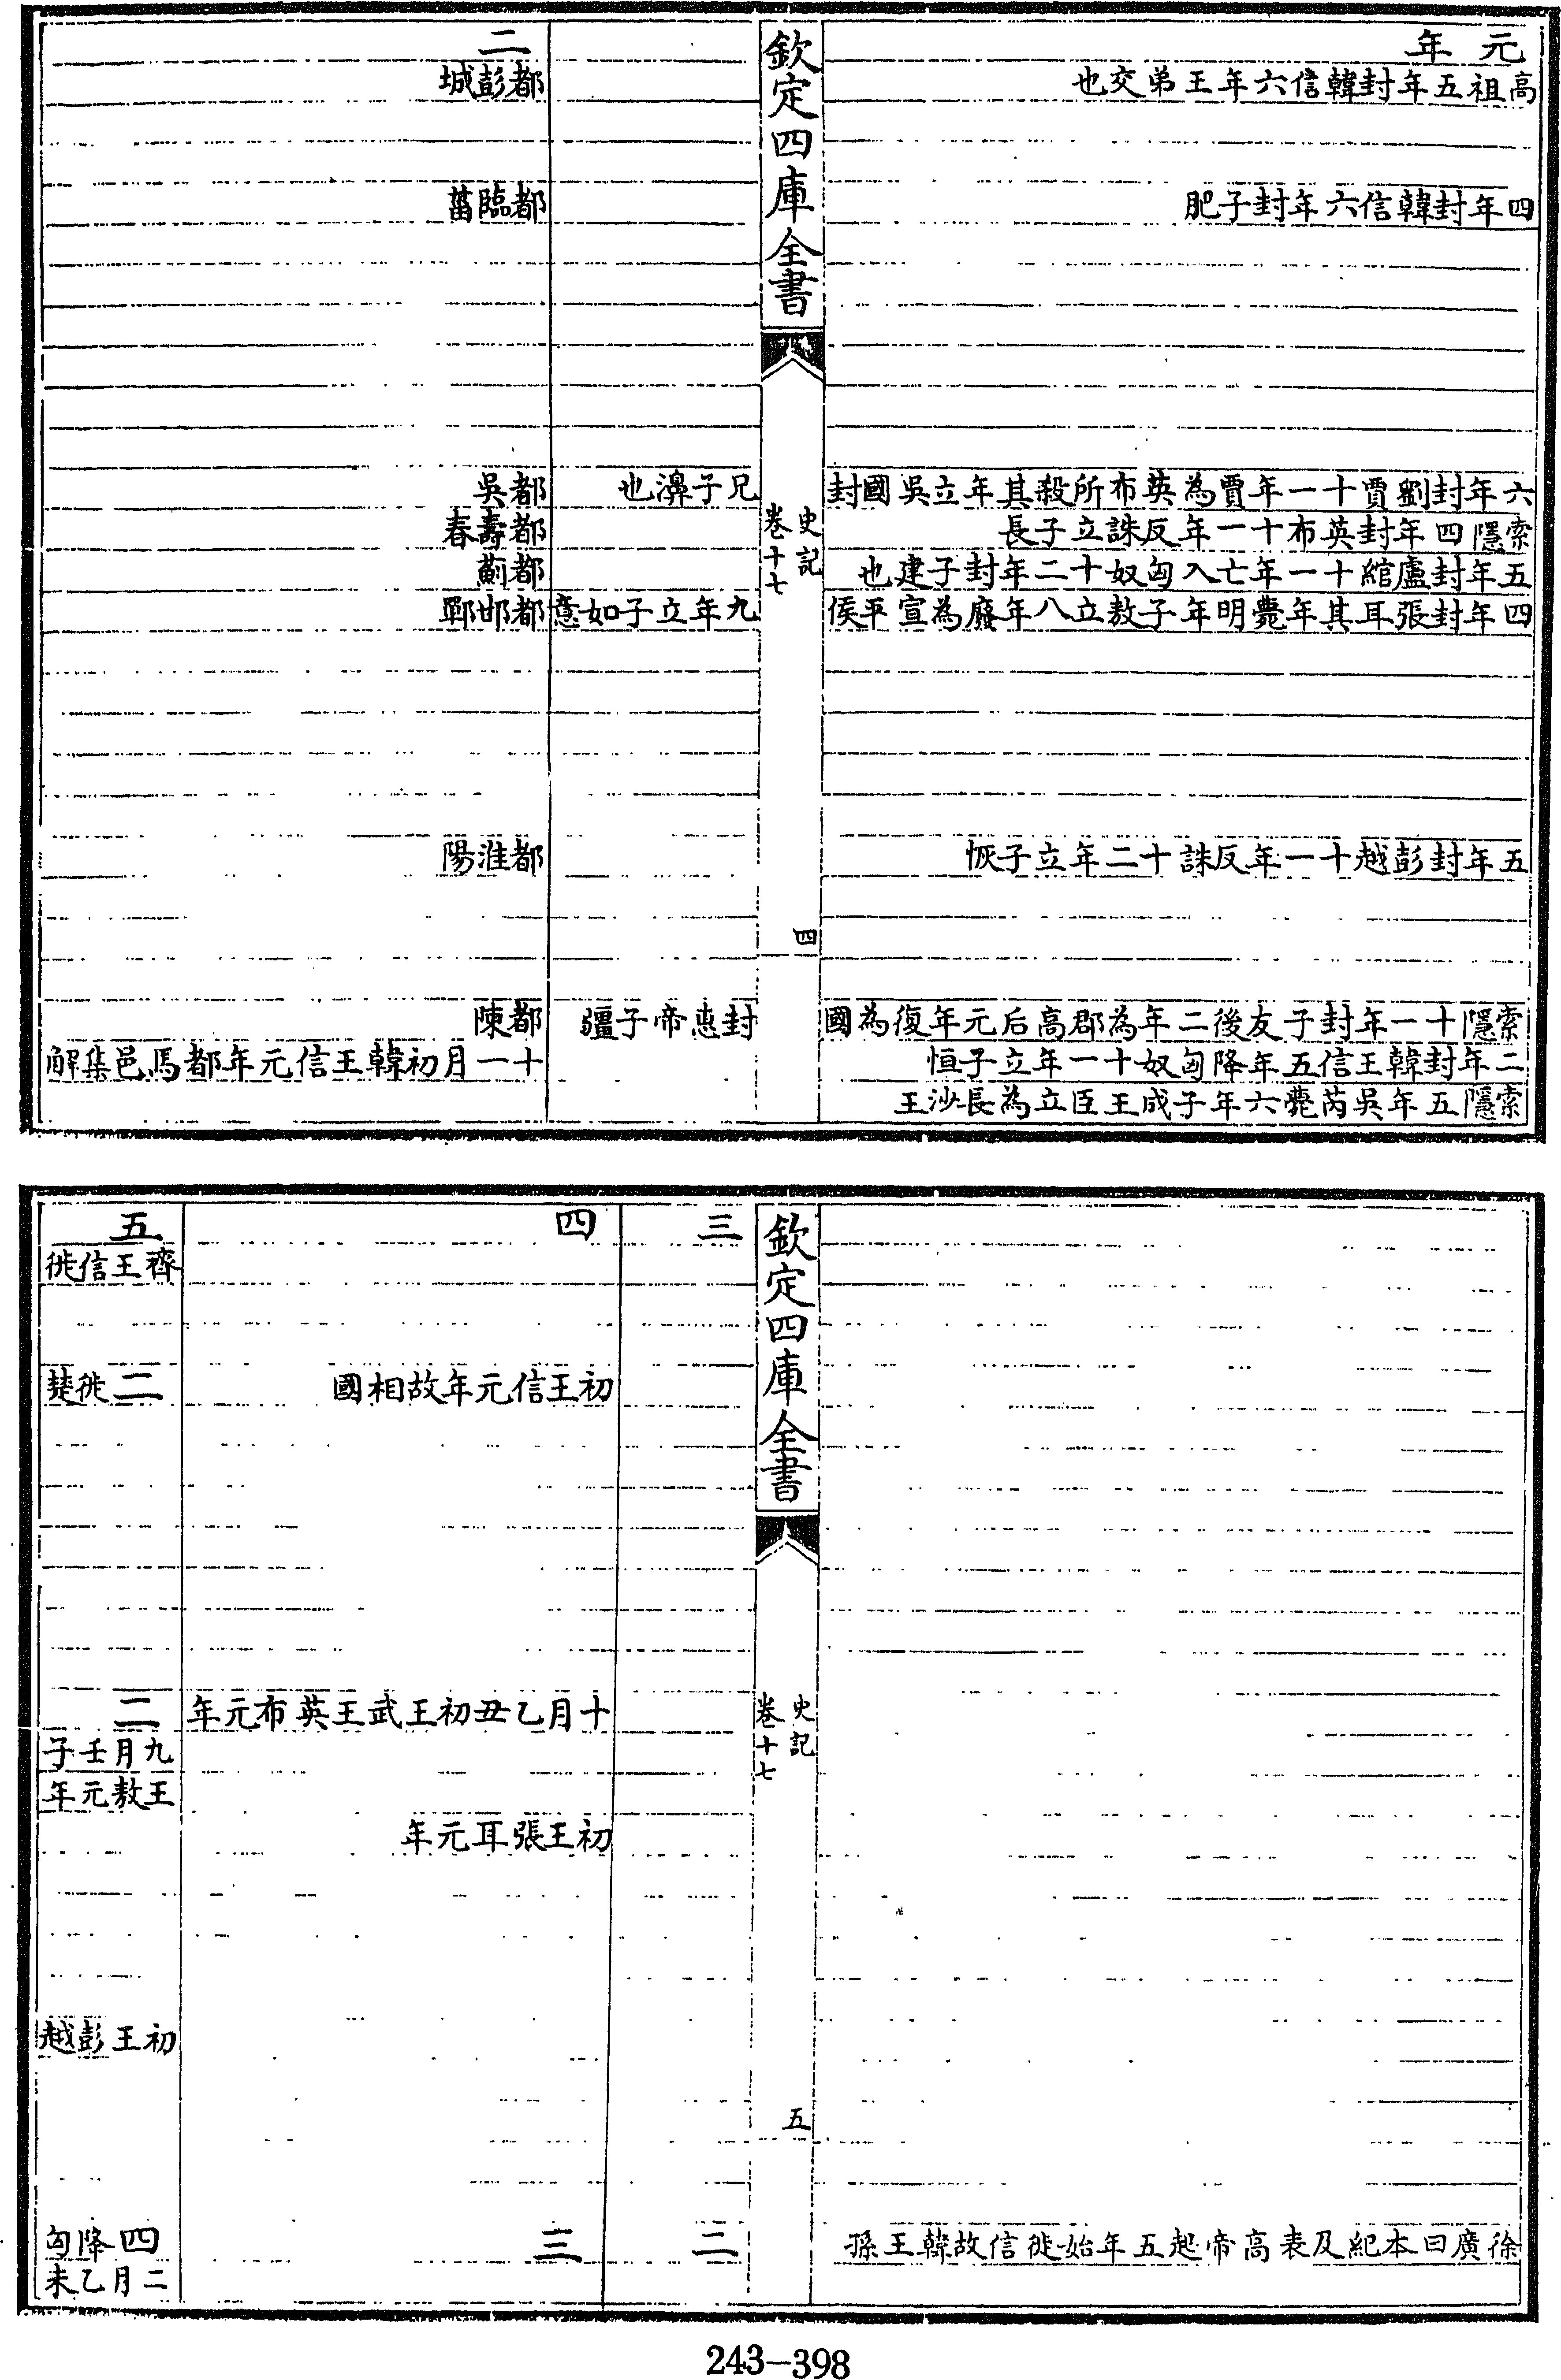 元年
高祖五年封韓信六年王弟交也
四年封韓信六年封子肥
六年封劉賈十一年賈為英布所殺其年立吳國封
索隱四年封英布十一年反誅立子長
五年封盧綰十一年亡入匈奴十二年封子建也
四年封張耳其年薨明年子敖立八年廢為宣平侯
五年封彭越十一年反誅十二年立子恢
索隱十一年封子友後二年為郡高后元年復為國
二年封韓王信五年降匈奴十一年立子恒
索隱五年吳芮薨六年子成王臣立為長沙王
欽定四庫全書
史記
卷十七
四
兄子濞也
九年立子如意
封惠帝子彊
二
都彭城
都臨菑
都吳
都壽春
都薊
都邯鄲
都淮陽
都陳
十一月初韓王信元年都馬邑集解
徐廣曰本紀及表高帝起五年始徙信故韓王孫
欽定四庫全書
史記
卷十七
五
三
二
四
初王信元年故相國
十月乙丑初王武王英布元年
初王張耳元年
三
五
齊王信徙
二徙楚
二
九月壬子
王敖元年
初王彭越
四降匈
二月乙未
243-398